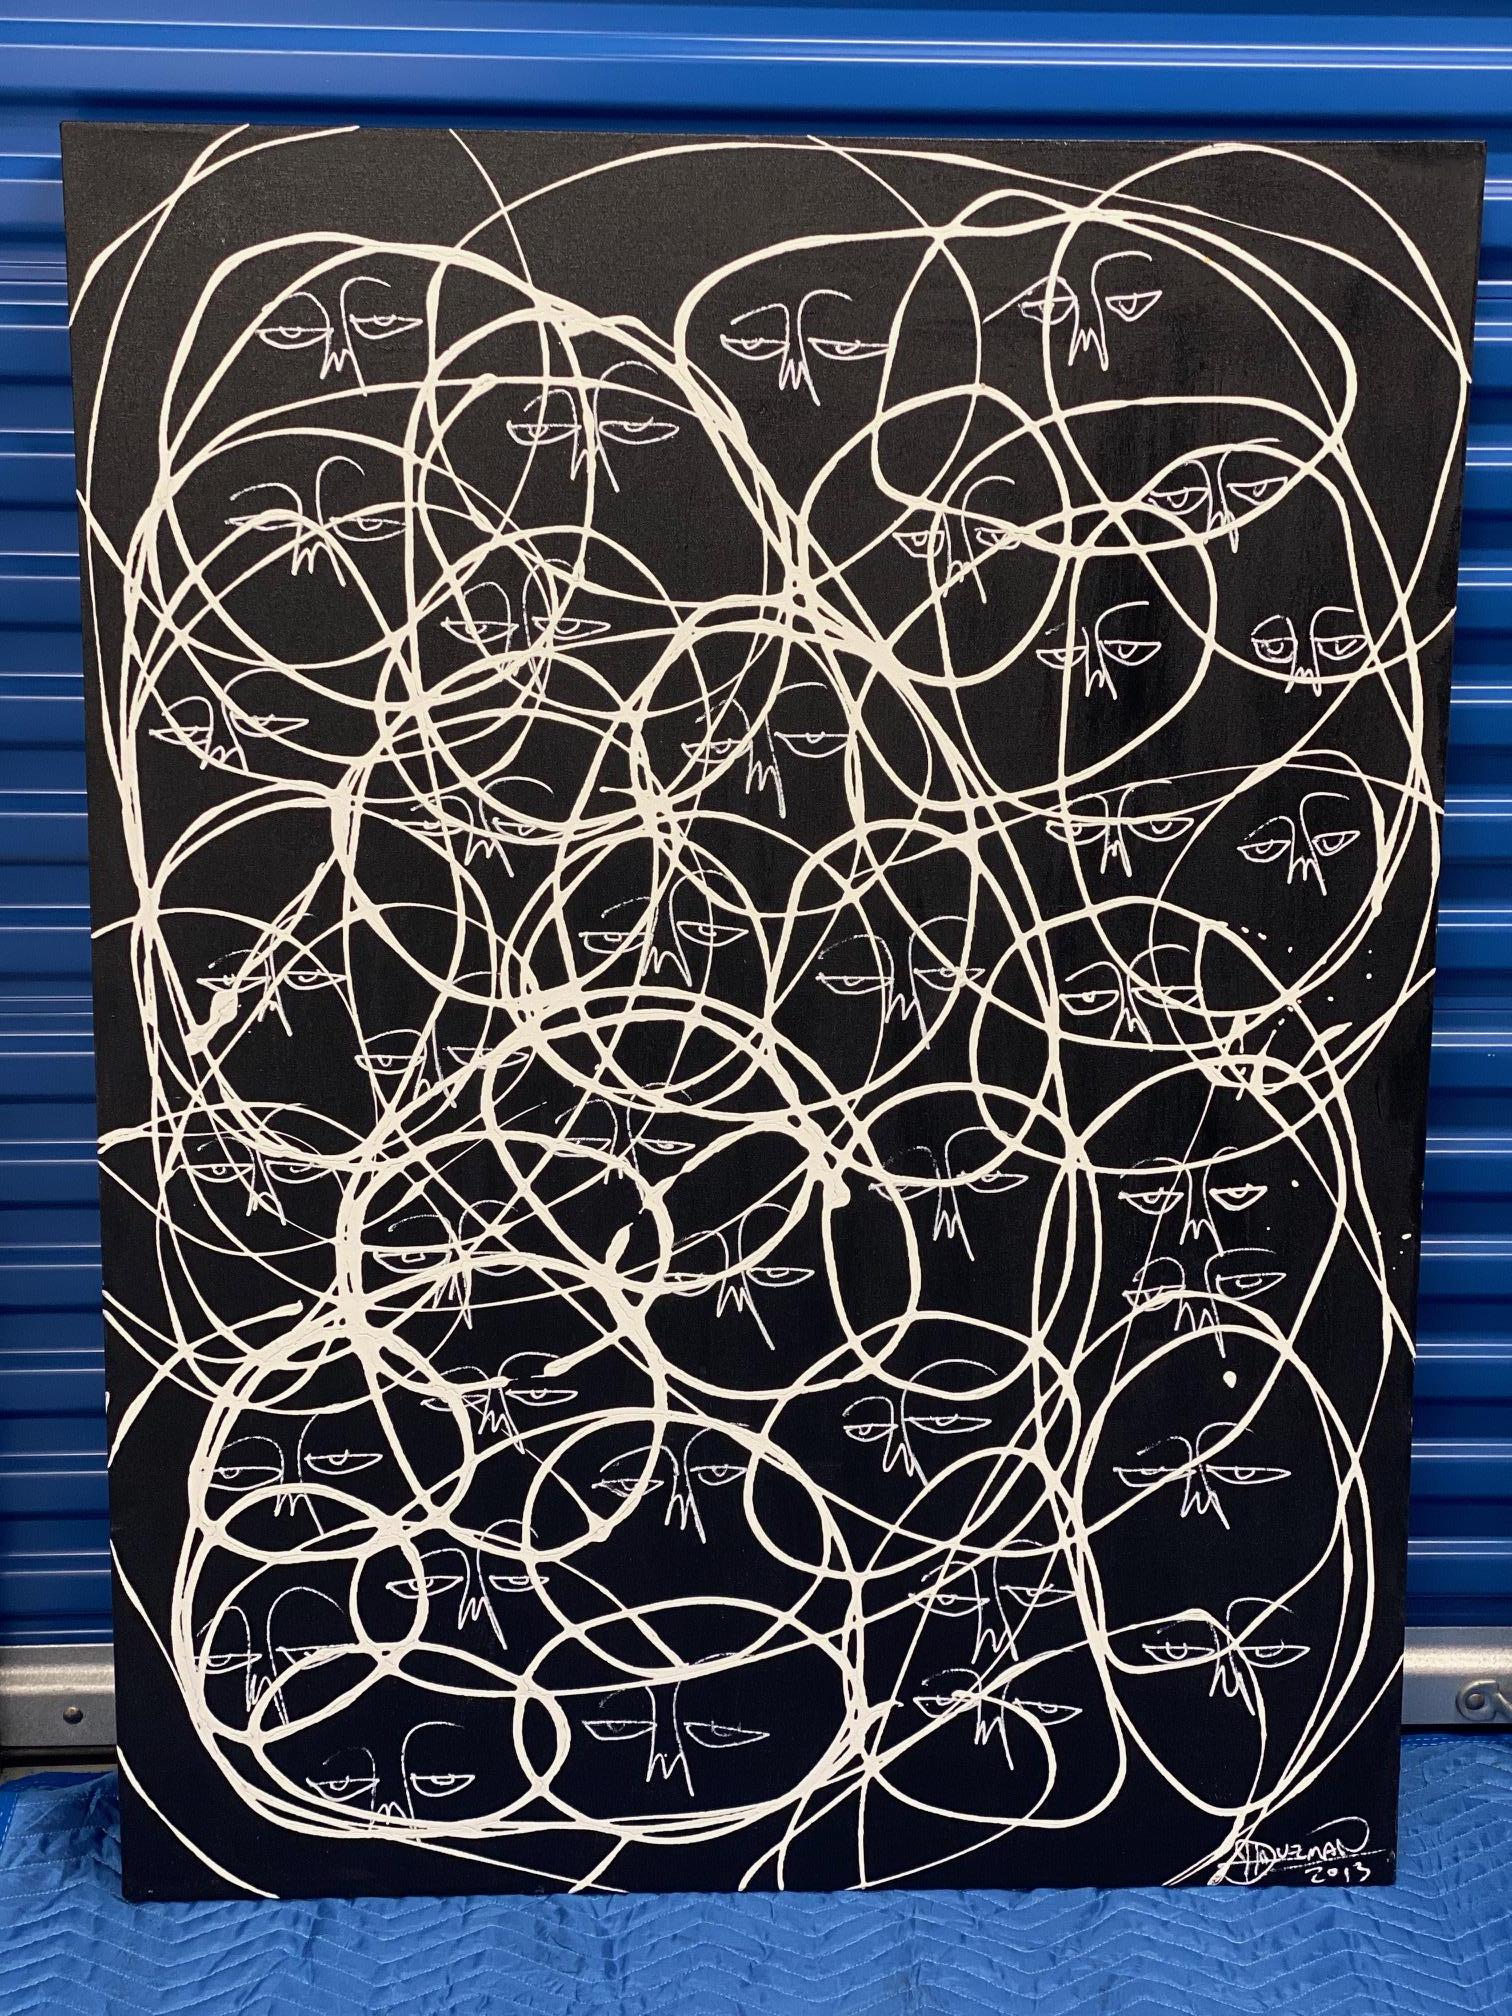 DUZMAN
2013